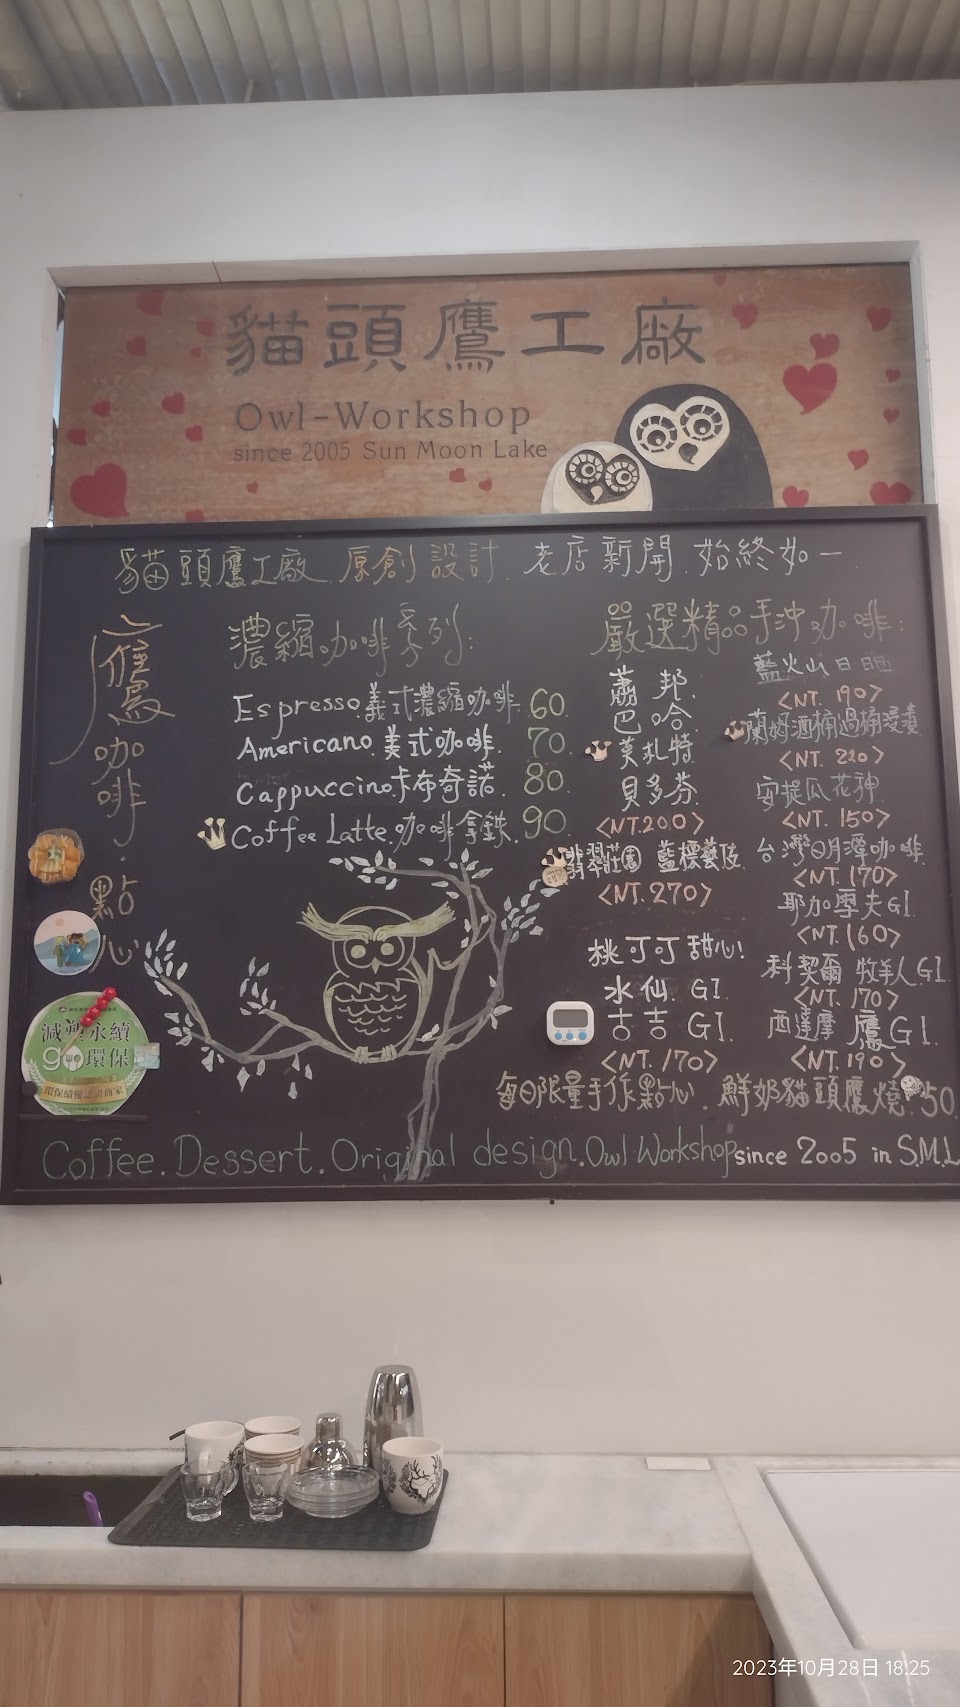 貓頭鷹工廠
Owl-Workshop
since 2005 Sun Moon Lake
貓頭鷹工廠.原創設計.老店新開.始終如一
鷹咖啡.點心
濃縮咖啡系列:
Espresso.義式濃縮咖啡 60.
Americano.美式咖啡. 70.
Cappuccino.卡布奇諾. 80
Coffee Latte.咖啡拿鐵. 90.
嚴選精品手沖咖啡:
蕭邦.
巴哈.
莫札特
貝多芬.
<NT.200>
翡翠莊園 藍標藝伎
<NT.270>
桃可可甜心!
水仙.G1
古吉G1
<NT.170>
藍火山日晒
<NT.190>
蘭姆酒桶過桶浸漬
<NT.220>
安提瓜花神
<NT.150>
台灣明潭咖啡.
<NT.170>
耶加摩夫G1.
<NT.160>
科契爾 牧羊人.G1
<NT.170>
西達摩 鷹G1.
<NT.190>
每日限量手作點心.鮮奶貓頭鷹燒.50
Coffee.Dessert.Original design.Owl Workshop since 2005 in S.M.L
減塑永續
go環保
環保績優認證商家
2023年10月28日 18:25